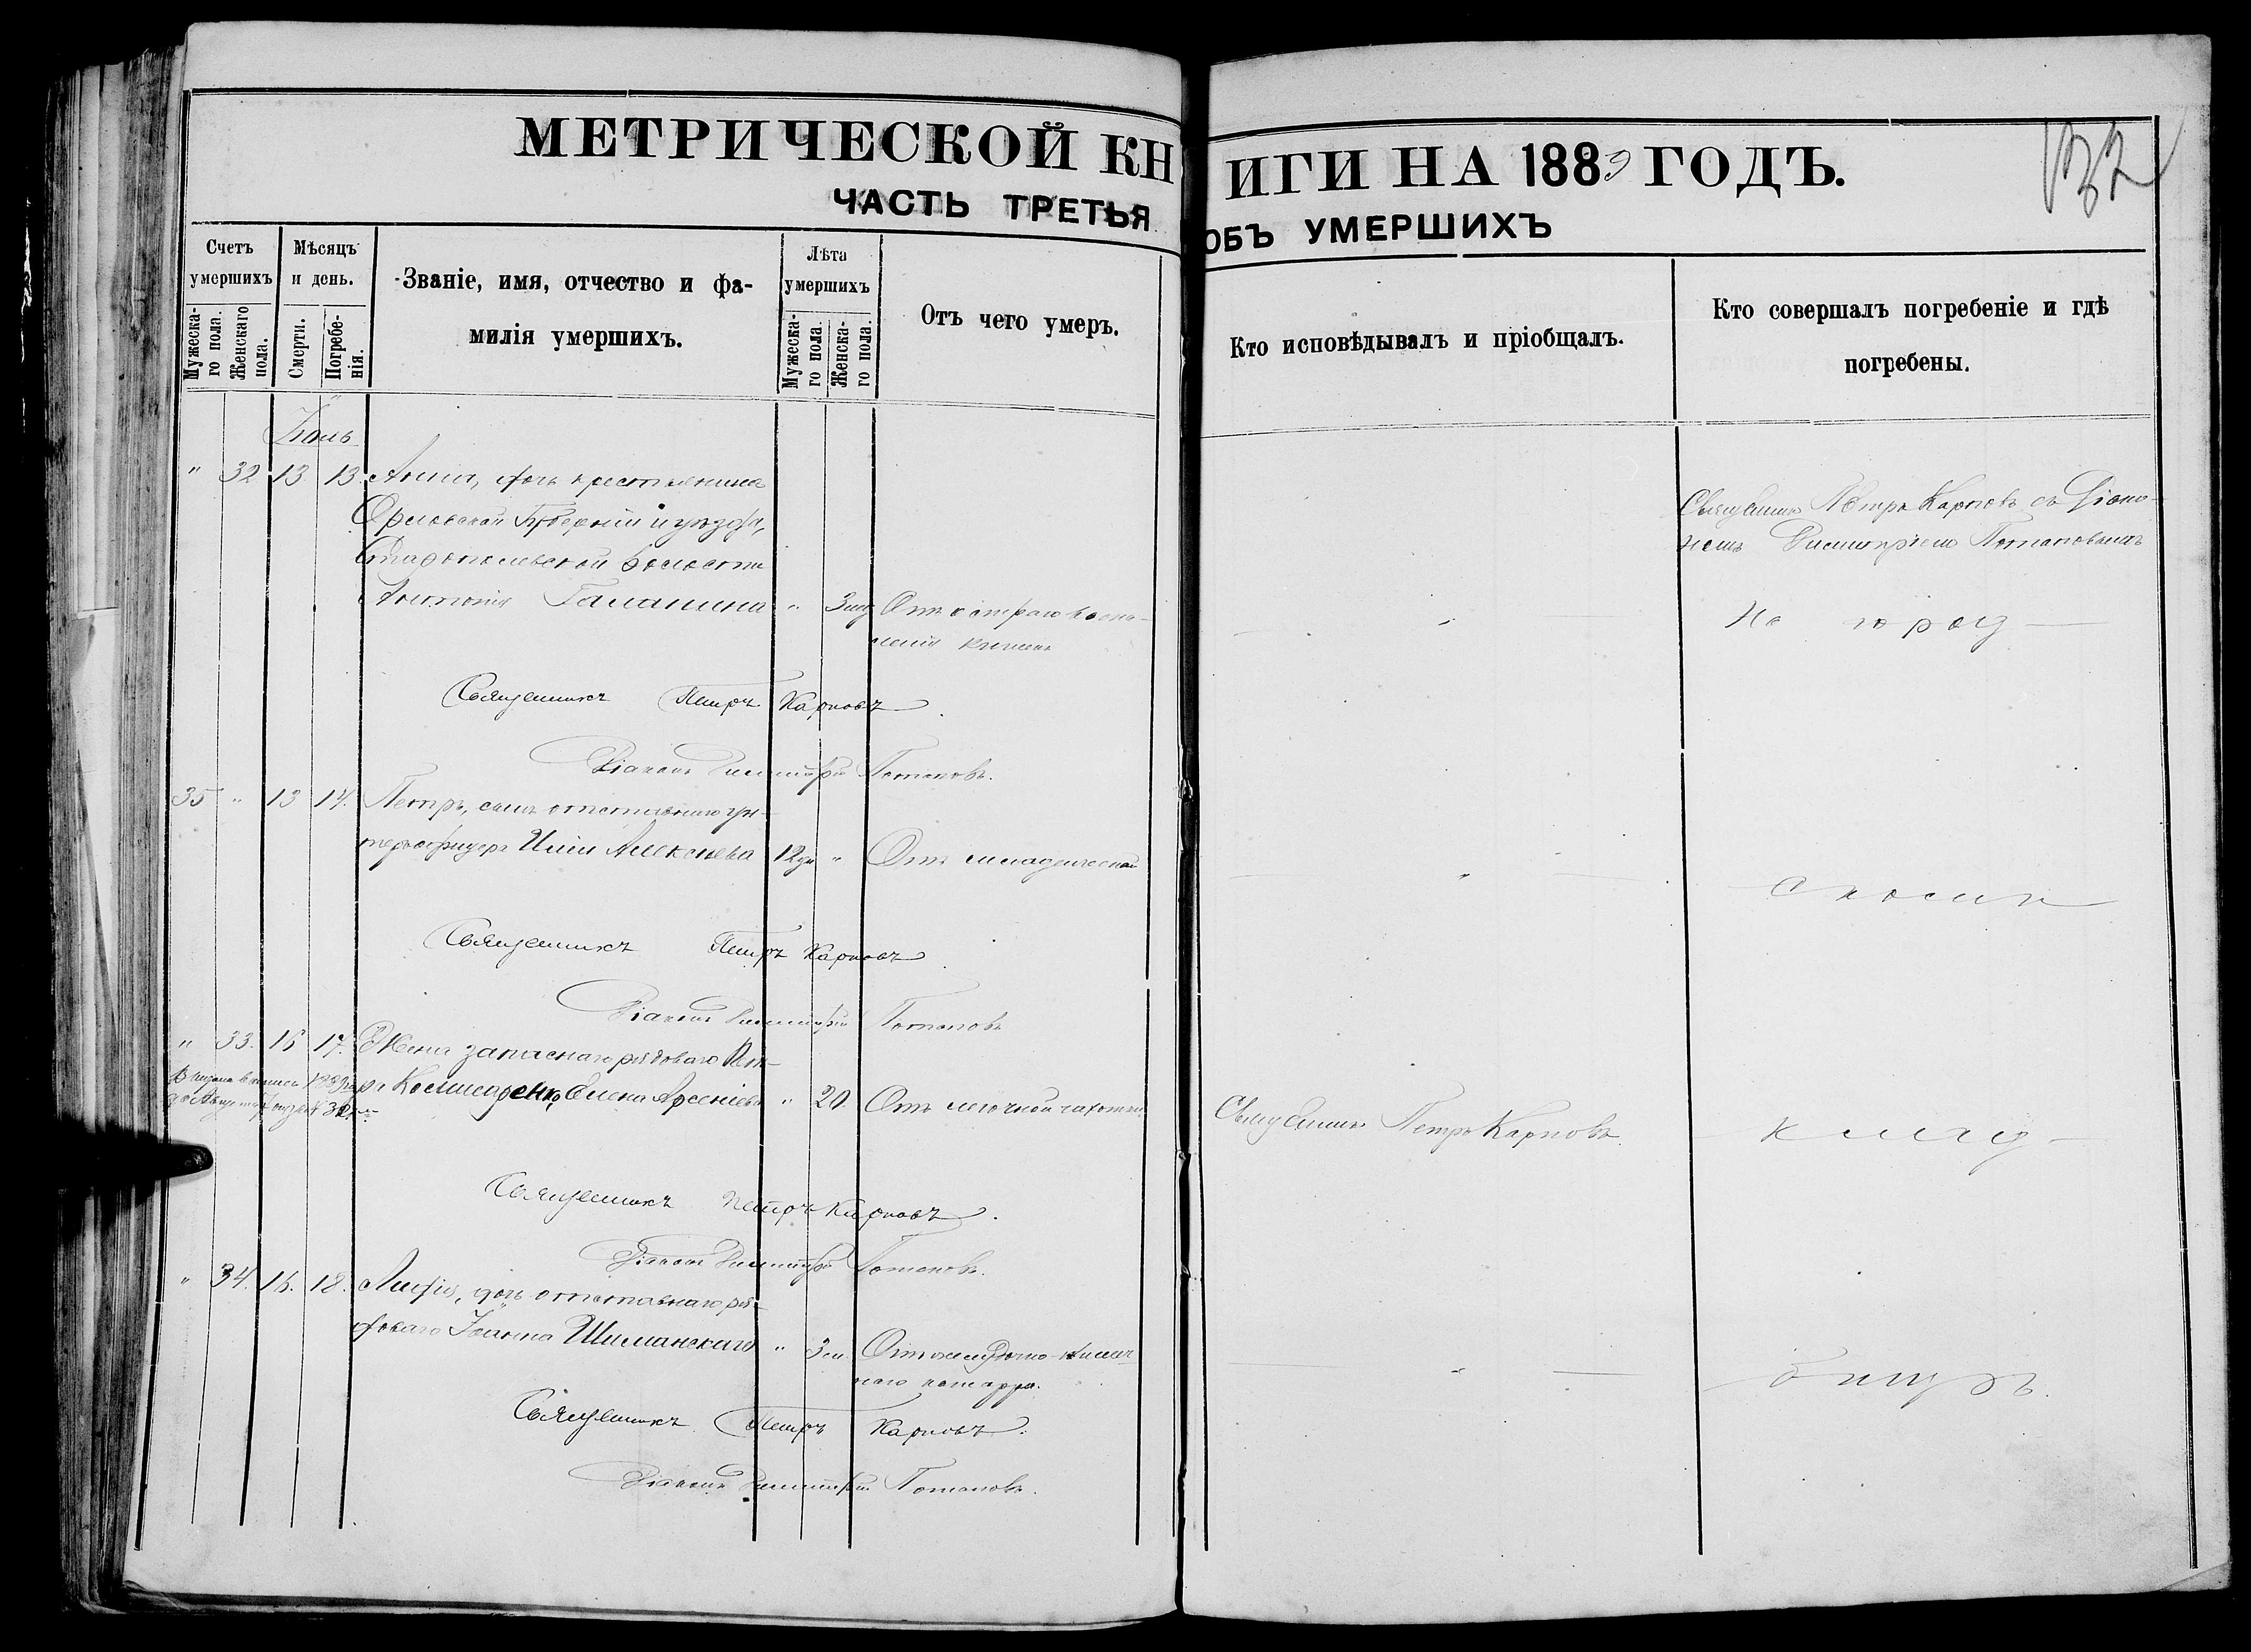 МЕТРИЧЕСКОЙ КНИГИ НА 1889 ГОДЪ.
132
ЧАСТЬ ТРЕТЬЯ ОБЪ УМЕРШИХЪ
Счетъ умершихъ
Мужеска-го пола.
Женскаго пола.
Мѣсяцъ и день.
Смерти.
Погребе-нія.
Званіе, имя, отчество и фа-
милія умершихъ.
Лѣта умершихъ
Мужеска-го пола.
Женска-го пола.
Отъ чего умеръ.
Кто исповѣдывалъ и пріобщалъ.
Кто совершалъ погребеніе и гдѣ
погребены.
Іюль
" 32 13 13. Анна, дочь крестьянина
Орловской Губерніи и уѣзда,
волости
Антонія Галанина " 3 Отъ остраго воспа-
ленія кишекъ
Священникъ Петръ Карповъ съ Діако-
номъ Димитріемъ Потаповымъ
На город
Священникъ Петръ Карповъ.
Діаконъ Димитрій Потаповъ.
35 " 13 14. Петръ, сынъ отставнаго ун-
теръ офицера Иліи Алексѣева 12 дн " Отъ младенческой
скомъ
Священникъ Петръ Карповъ
Діаконъ Димитрій Потаповъ
" 33. 16 17. Жена запаснаго рядоваго Пет-
ра Елена Арсеніева " 20. Отъ легочной чахотки
Священникъ Петръ Карповъ.
клад
Священникъ Петръ Карповъ.
Діаконъ Димитрій Потаповъ.
" 34. 16. 18. Лидія, дочь отставнаго ря-
доваго Іоанна Шиманскаго " 3 м. Отъ желудочно-кишеч-
наго катарра.
бищѣ.
Священникъ Петръ Карповъ.
Діаконъ Димитрій Потаповъ.